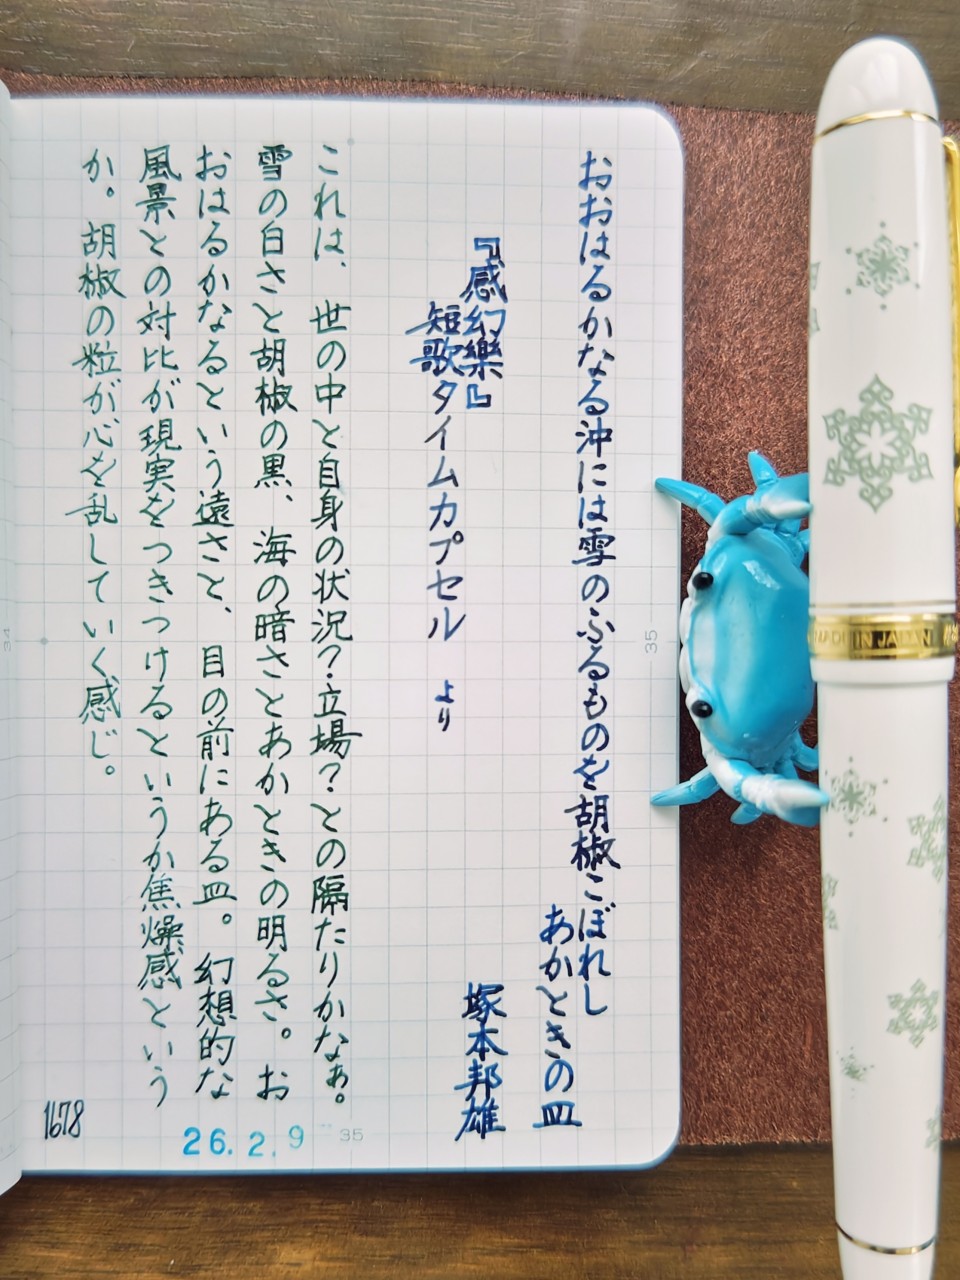 おおはるかなる沖には雪のふるものを胡椒こぼれし
あかときの皿
『感幻樂』
塚本邦雄
短歌タイムカプセル より
これは、世の中と自身の状況?立場?との隔たりかなぁ。
雪の白さと胡椒の黒、海の暗さとあかときの明るさ。お
おはるかなるという遠さと、目の前にある皿。幻想的な
風景との対比が現実をつきつけるというか焦燥感という
か。胡椒の粒が心を乱していく感じ。
1678
26.2.9
35
35
34
MADE IN JAPAN